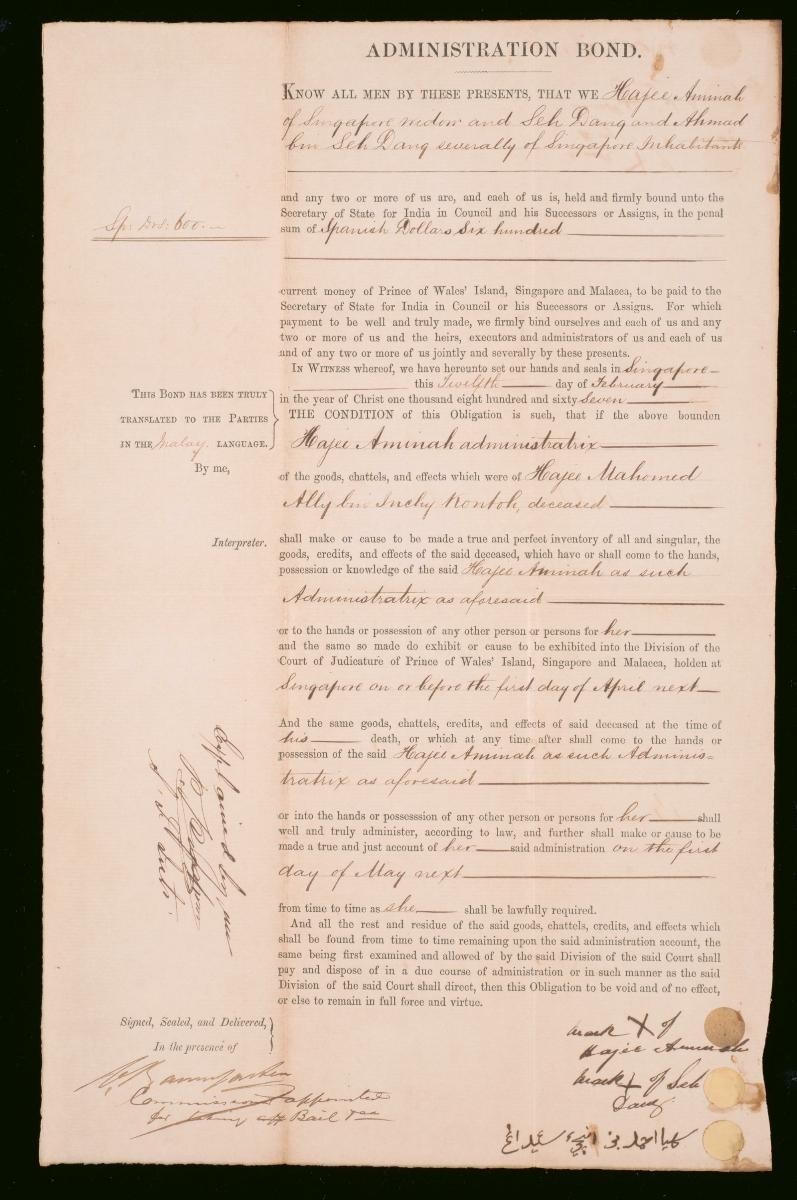 ADMINISTRATION BOND.
KNOW ALL MEN BY THESE PRESENTS, THAT WE Hajee Aminah
of Singapore widow and Seh Dang and Ahmad
bin Seh Dang severally of Singapore Inhabitants
and any two or more of us are, and each of us is, held and firmly bound unto the
Secretary of State for India in Council and his Successors or Assigns, in the penal
sum of Spanish Dollars Six hundred
Sp: Drs: 600.
current money of Prince of Wales' Island, Singapore and Malacca, to be paid to the
Secretary of State for India in Council or his Successors or Assigns. For which
payment to be well and truly made, we firmly bind ourselves and each of us and any
two or more of us and the heirs, executors and administrators of us and each of us
and of any two or more of us jointly and severally by these presents.
IN WITNESS whereof, we have hereunto set our hands and seals in Singapore
this Twelfth day of February
in the year of Christ one thousand eight hundred and sixty Seven
THIS BOND HAS BEEN TRULY
TRANSLATED TO THE PARTIES
IN THE Malay LANGUAGE.
By me,
Interpreter.
THE CONDITION of this Obligation is such, that if the above bounden
Hajee Aminah administratrix
of the goods, chattels, and effects which were of Hajee Mahomed
Ally bin Inchy Kontoh, deceased
shall make or cause to be made a true and perfect inventory of all and singular, the
goods, credits, and effects of the said deceased, which have or shall come to the hands,
possession or knowledge of the said Hajee Aminah as such
Administratrix as aforesaid
or to the hands or possession of any other person or persons for her
and the same so made do exhibit or cause to be exhibited into the Division of the
Court of Judicature of Prince of Wales' Island, Singapore and Malacca, holden at
Singapore on or before the first day of April next
And the same goods, chattels, credits, and effects of said deceased at the time of
his death, or which at any time after shall come to the hands or
possession of the said Hajee Aminah as such Adminis=
tratrix as aforesaid
or into the hands or possesssion of any other person or persons for her shall
well and truly administer, according to law, and further shall make or cause to be
made a true and just account of her said administration on the first
day of May next
from time to time as she shall be lawfully required.
And all the rest and residue of the said goods, chattels, credits, and effects which
shall be found from time to time remaining upon the said administration account, the
same being first examined and allowed of by the said Division of the said Court shall
pay and dispose of in a due course of administration or in such manner as the said
Division of the said Court shall direct, then this Obligation to be void and of no effect,
or else to remain in full force and virtue.
Explained by me
Signed, Sealed, and Delivered,
In the presence of
Commissioner appointed
for taking Bail &ca
mark X of
Hajee Aminah
mark + of Seh
Dang